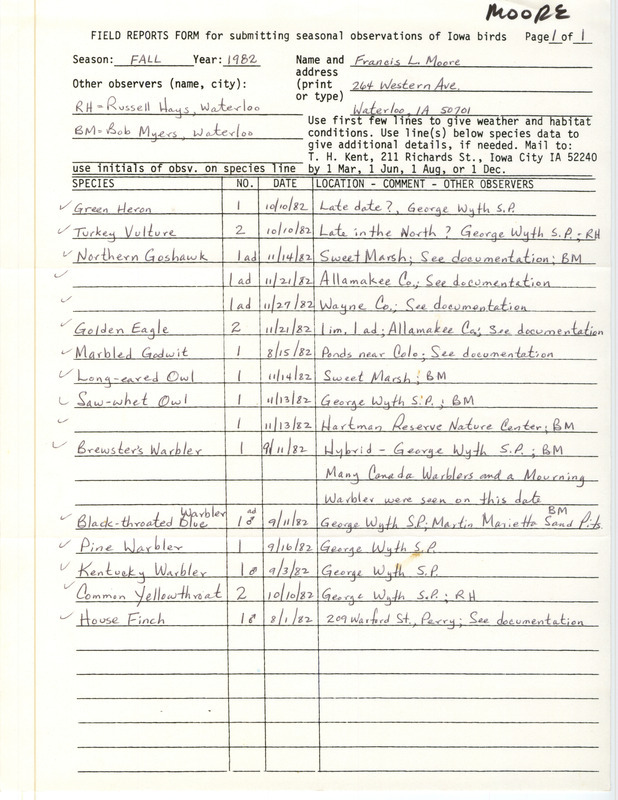 MOORE
FIELD REPORTS FORM for submitting seasonal observations of Iowa birds Page 1 of 1
Season: FALL Year: 1982 Name and address (print or type) Francis L. Moore
264 Western Ave.
Waterloo, IA 50701
Other observers (name, city):
RH = Russell Hays, Waterloo
BM = Bob Myers, Waterloo
use initials of obsv. on species line
Use first few lines to give weather and habitat
conditions. Use line(s) below species data to
give additional details, if needed. Mail to:
T. H. Kent, 211 Richards St., Iowa City IA 52240
by 1 Mar, 1 Jun, 1 Aug, or 1 Dec.
SPECIES NO. DATE LOCATION - COMMENT - OTHER OBSERVERS
✓ Green Heron 1 10/10/82 Late date?, George Wyth S.P.
✓ Turkey Vulture 2 10/10/82 Late in the North? George Wyth S.P.; RH
✓ Northern Goshawk 1 ad 11/14/82 Sweet Marsh; See documentation; BM
✓ 1 ad 11/21/82 Allamakee Co.; See documentation
✓ 1 ad 11/27/82 Wayne Co.; See documentation
✓ Golden Eagle 2 11/21/82 1 im, 1 ad; Allamakee Co.; See documentation
✓ Marbled Godwit 1 8/15/82 Ponds near Colo; See documentation
✓ Long-eared Owl 1 11/14/82 Sweet Marsh; BM
✓ Saw-whet Owl 1 11/13/82 George Wyth S.P.; BM
✓ 1 11/13/82 Hartman Reserve Nature Center; BM
✓ Brewster's Warbler 1 9/11/82 Hybrid - George Wyth S.P.; BM
Many Canada Warblers and a Mourning
Warbler were seen on this date
✓ Black-throated Blue Warbler 1 ad ♂ 9/11/82 George Wyth S.P.; Martin Marietta Sand Pits BM
✓ Pine Warbler 1 9/16/82 George Wyth S.P.
✓ Kentucky Warbler 1♂ 9/3/82 George Wyth S.P.
✓ Common Yellowthroat 2 10/10/82 George Wyth S.P.; RH
✓ House Finch 1♂ 8/1/82 209 Warford St., Perry; See documentation